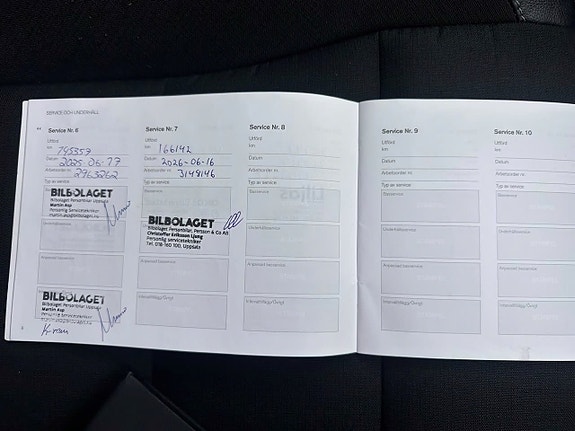 SERVICE OCH UNDERHÅLL
Service Nr. 6
Utförd
km
Datum 2025-06-17
Arbetsorder nr 2963262
Typ av service
BILBOLAGET
Bilbolaget Personbilar Uppsala
Martin Asp
Personlig Servicetekniker
Underhållsservice
Anpassad basservice
BILBOLAGET
Bilbolaget Personbilar Uppsala
Martin Asp
Personlig Servicetekniker
Service Nr. 7
Utförd
km 166142
Datum 2026-06-16
Arbetsorder nr 3148146
Typ av service
Basservice
BILBOLAGET
Bilbolaget Personbilar, Persson & Co AB
Christoffer Eriksson Ljung
Personlig servicetekniker
Tel. 018-160 100, Uppsala
Anpassad basservice
Intervalltillägg/Övrigt
Service Nr. 8
Utförd
km
Datum
Arbetsorder nr
Typ av service
Basservice
Underhållsservice
Anpassad basservice
Intervalltillägg/Övrigt
Service Nr. 9
Utförd
km
Datum
Arbetsorder nr
Typ av service
Basservice
Underhållsservice
Anpassad basservice
Intervalltillägg/Övrigt
Service Nr. 10
Utförd
km
Datum
Arbetsorder nr
Typ av service
Basservice
Underhållsservice
Anpassad basservice
Intervalltillägg/Övrigt